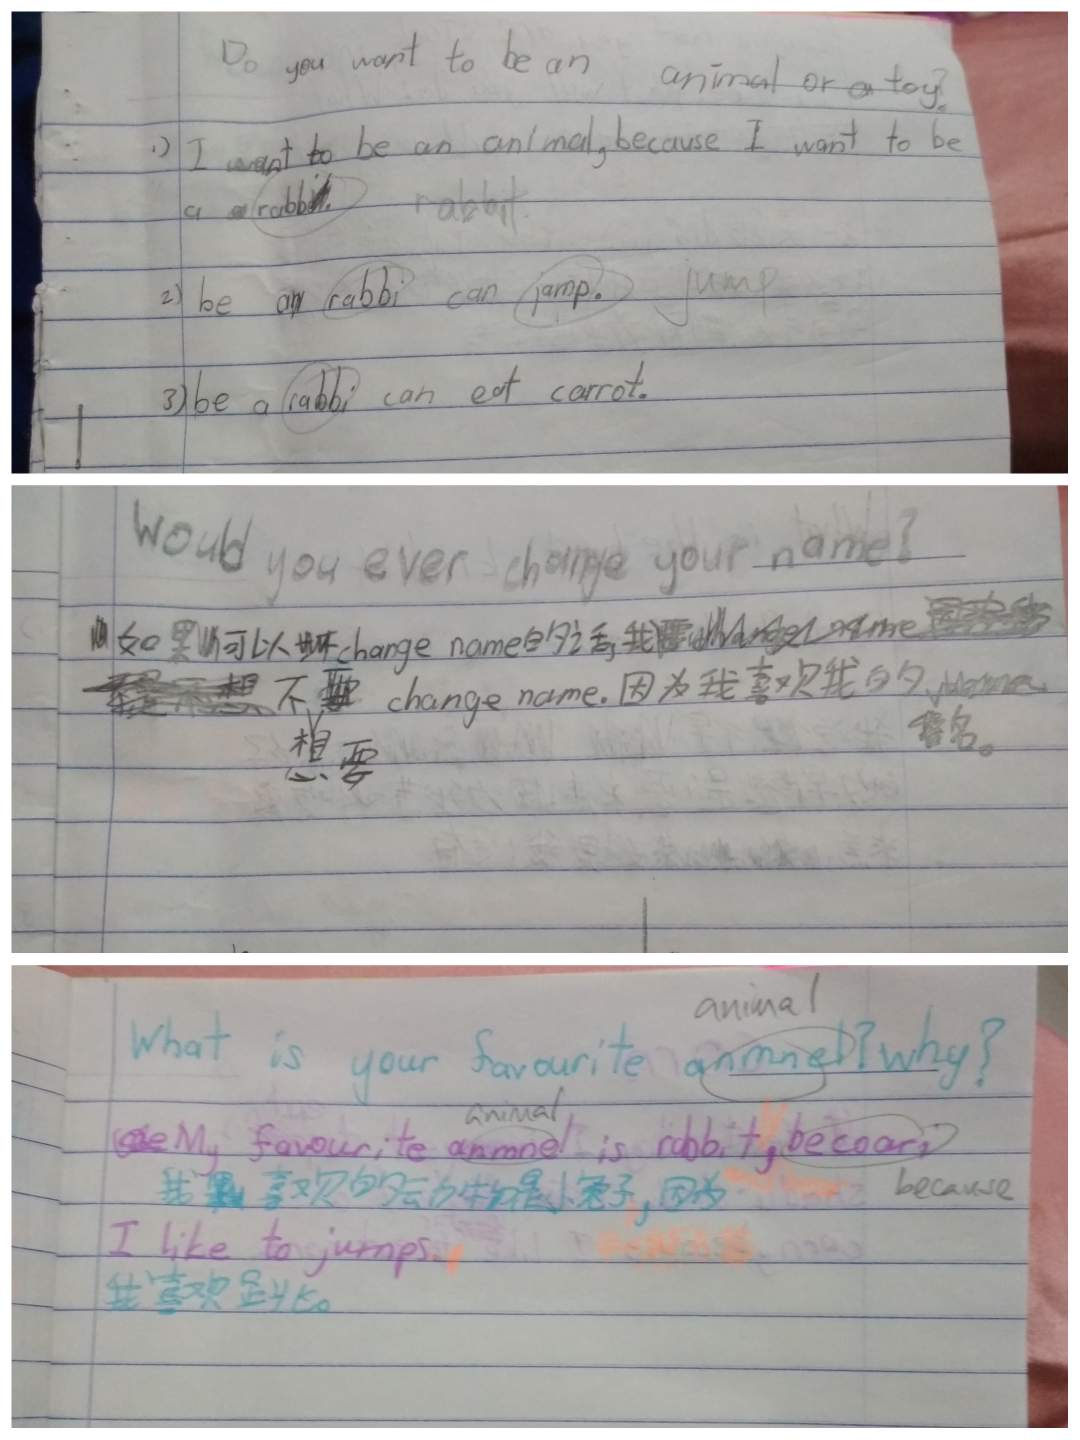 Do you want to be an animal or a toy?
1) I want to be an animal, because I want to be
a rabbit. rabbit
2) be an rabbi can jamp. jump
3) be a rabbi can eat carrot.
Would you ever change your name?
如果 可以 change name的话, 我
不 change name. 因为我喜欢我的
想要 名。
animal
What is your favourite anmnel? why?
animal
My favourite anmnel is rabbit, becoari
我喜欢的动物是小兔子, 因为 because
I like to jumps.
我喜欢跳。